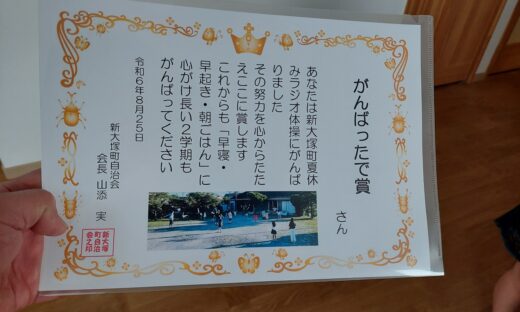 がんばったで賞
さん
あなたは新大塚町夏休
みラジオ体操にがんば
りました
その努力を心からたた
えここに賞します
これからも「早寝・
早起き・朝ごはん」に
心がけ長い2学期も
がんばってください
令和6年8月25日
新大塚町自治会
会長 山添 実
新大塚
町自治
会之印